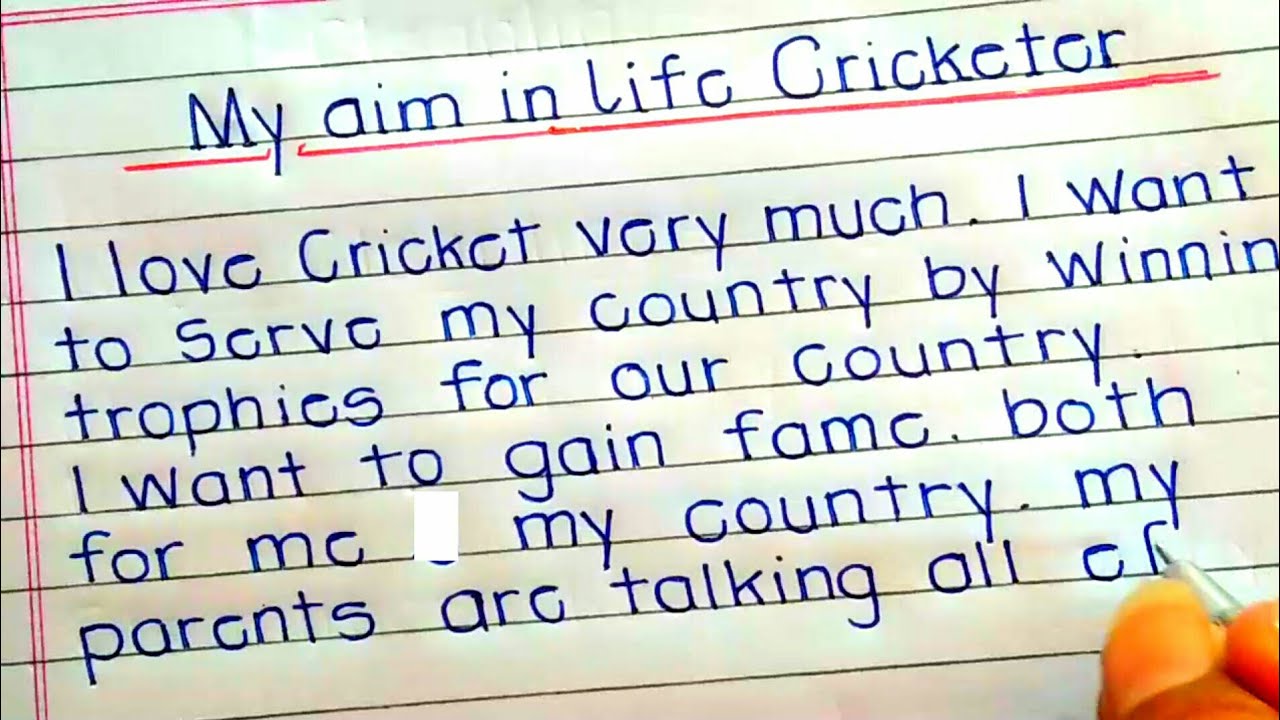 My aim in life Cricketer
I love Cricket very much. I want
to serve my country by winnin
trophies for our country.
I want to gain fame. both
for me my country. my
parents are talking all ef